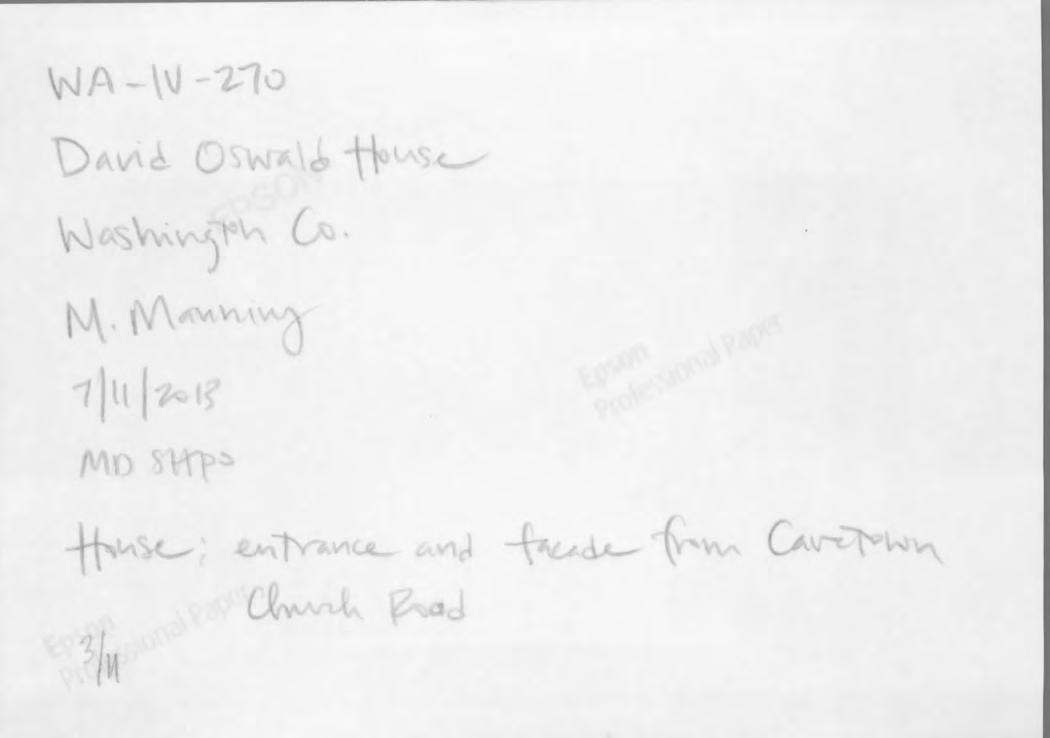 WA-IV-270
David Oswald House
EPSON
Washington Co.
M. Manning
Epson
Professional Paper
7/11/2013
MD SHPO
House; entrance and facade from Cavetown
Church Road
Epson
Professional Paper
3/11